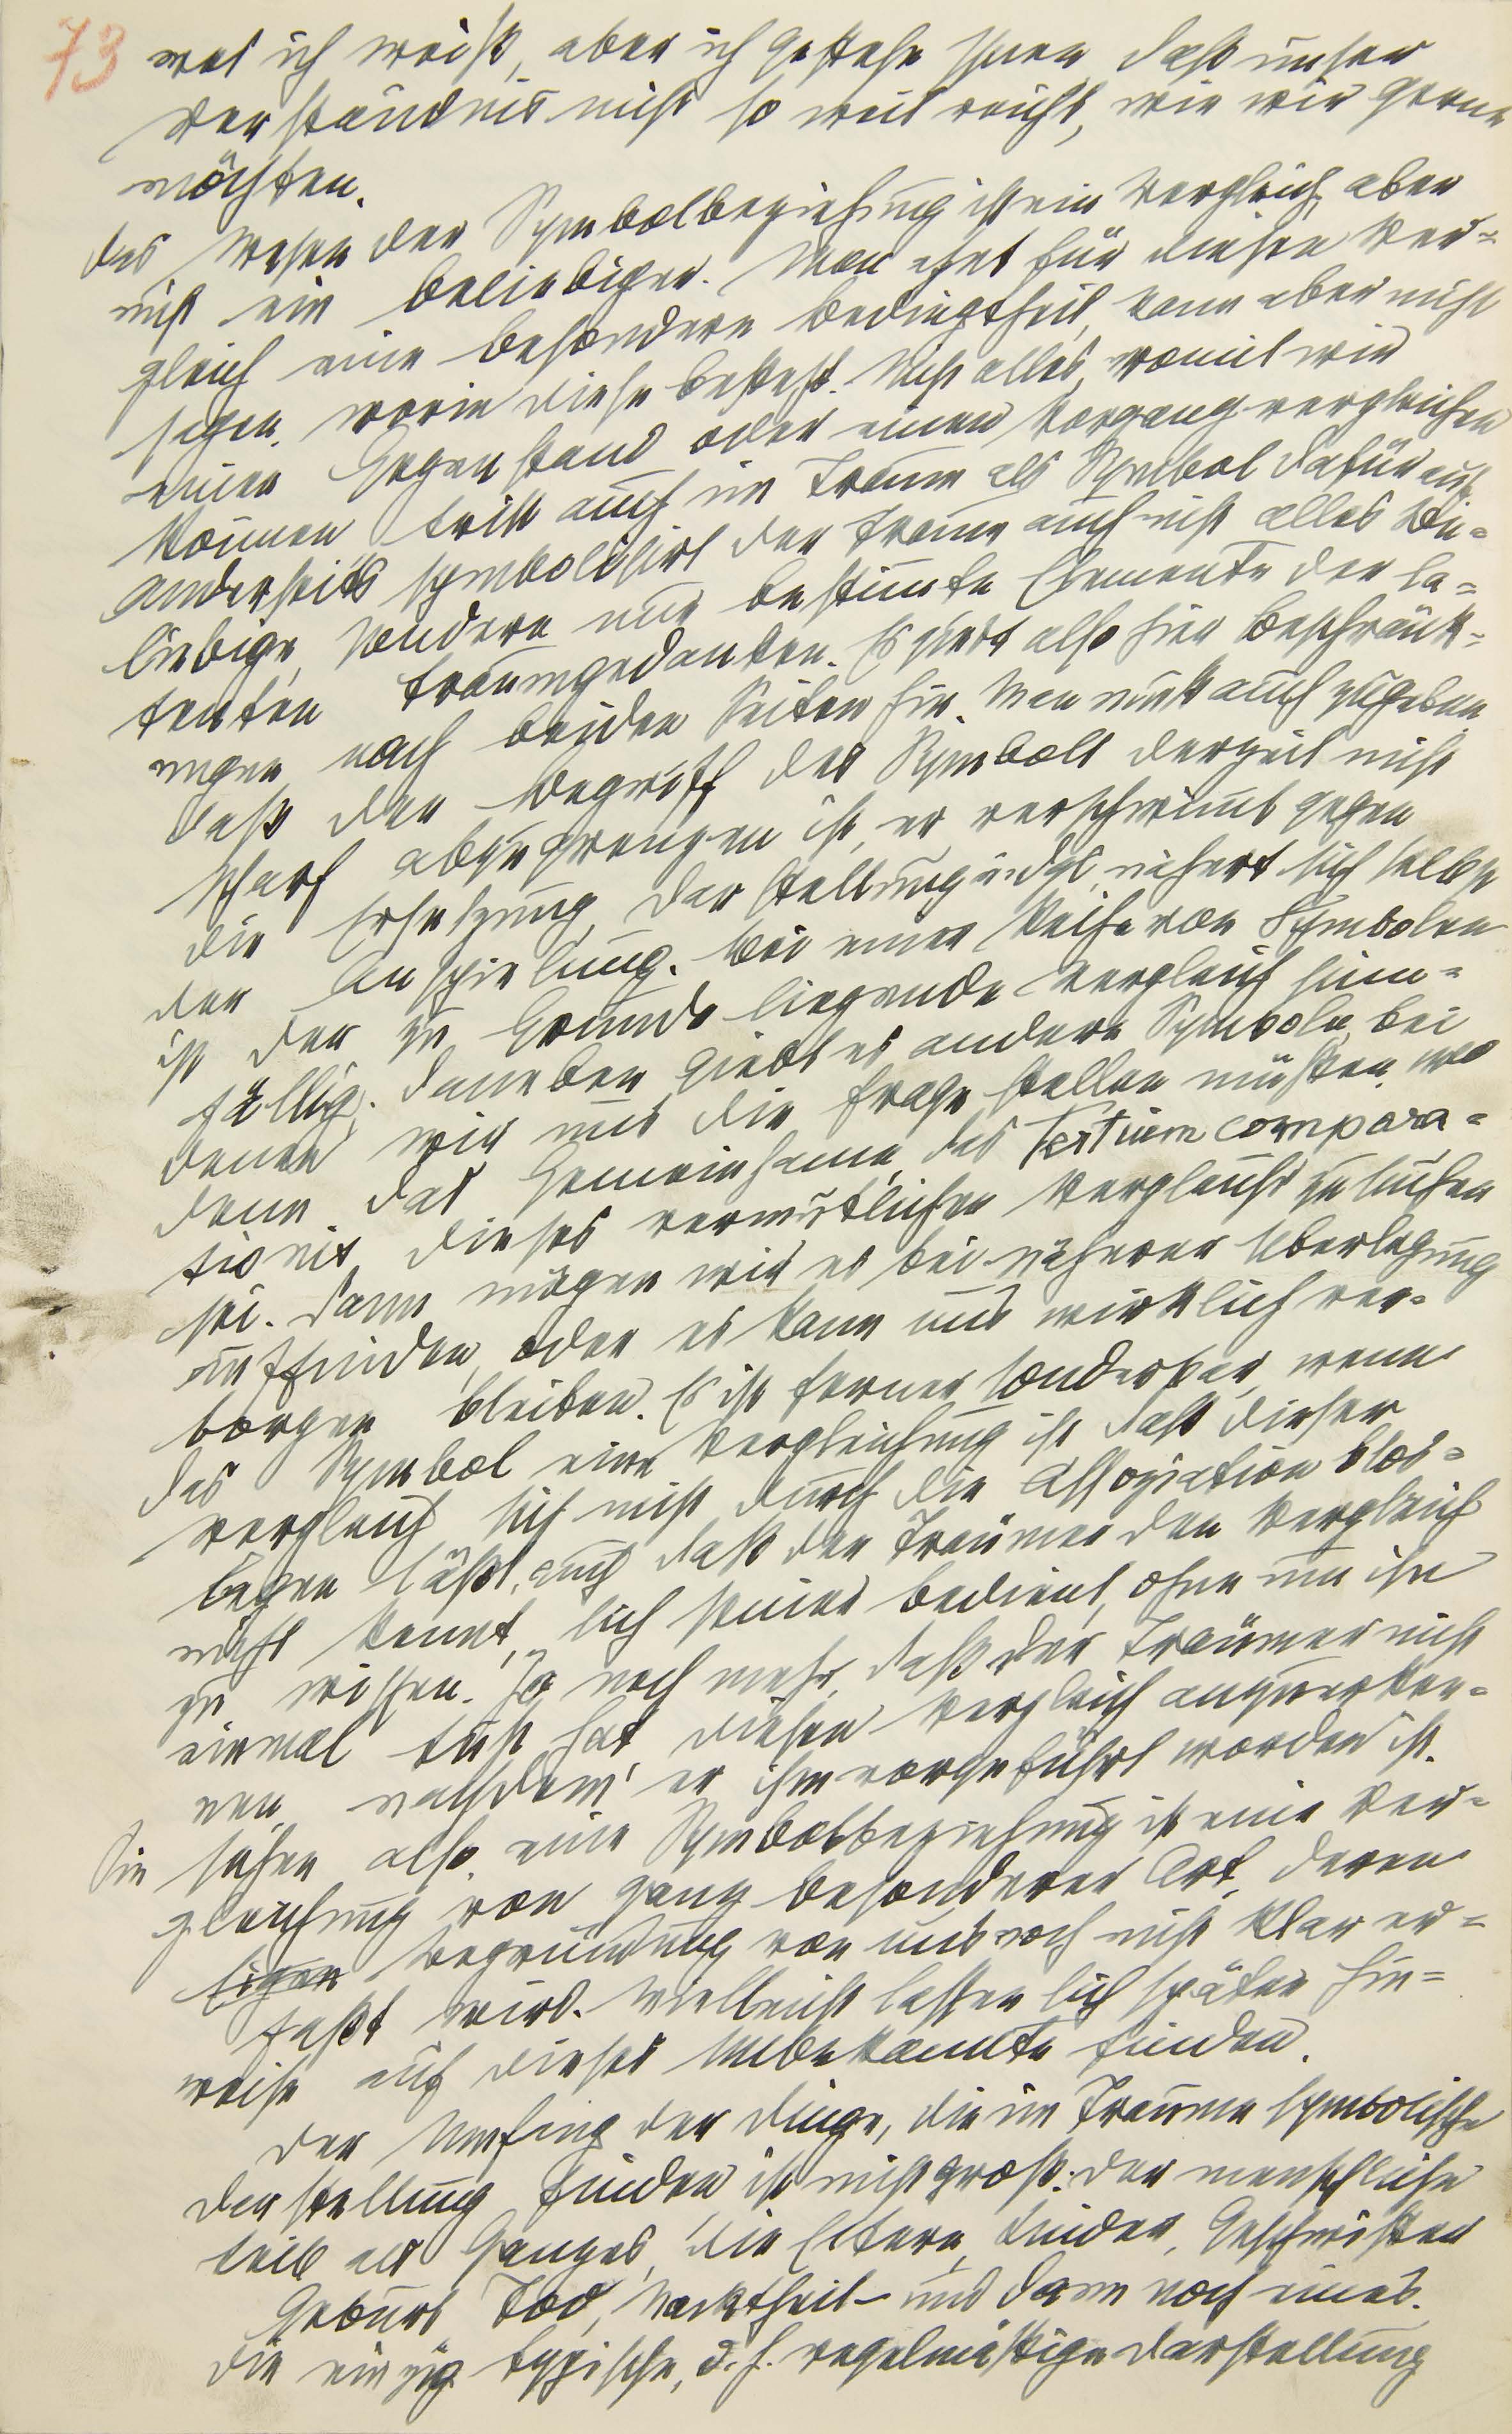 73
was ich weiß, aber ich gestehe Ihnen daß unser
Verständnis nicht so weit reicht, wie wir gerne
möchten.
Das Wesen der Symbolbeziehung ist ein Vergleich, aber
nicht ein beliebiger. Man ahnt für diesen Ver=
gleich eine besondere Bedingtheit, kann aber nicht
sagen, worin diese besteht. Nicht alles, womit wir
einen Gegenstand oder einen Vorgang vergleichen
können tritt auch im Traum als Symbol dafür auf.
Anderseits symbolisirt der Traum auch nicht alles Be=
liebige, sondern nur bestimte Elemente der la=
tenten Traumgedanken. Es giebt also hier Beschränk=
ungen nach beiden Seiten hin. Man muß auch zugeben
daß der Begriff des Symbols derzeit nicht
scharf abzugrenzen ist, er verschwimt gegen
die Ersetzung, Darstellung u dgl, nähert sich selbst
der Anspielung. Bei einer Reihe von Symbolen
ist der zu Grunde liegende Vergleich sinn=
fällig. Daneben giebt es andere Symbole, bei
denen wir uns die Frage stellen müßen, wo
denn das Gemeinsame, das Tertium compara=
tionis dieses vermutlichen Vergleichs zu suchen
sei. Dann mögen wir es bei näherer Überlegung
auffinden, oder es kann uns wirklich ver=
borgen bleiben. Es ist ferner sonderbar, wenn
das Symbol eine Vergleichung ist daß dieser
Vergleich sich nicht durch die Assoziation blos=
legen läßt, auch daß der Träumer den Vergleich
nicht kennt, sich seiner bedient, ohne um ihn
zu wissen. Ja noch mehr, daß der Träumer nicht
einmal Lust hat, diesen Vergleich anzuerken=
nen, nachdem er ihm vorgeführt worden ist.
Sie sehen also, eine Symbolbeziehung ist eine Ver=
gleichung von ganz besonderer Art, deren
Begründung von uns noch nicht klar er=
faßt wird. Vielleicht lassen sich später Hin=
weise auf dieses Unbekannte finden.
Der Umfang der Dinge, die im Traume symbolische
Darstellung finden ist nicht groß. Der menschliche
Leib als Ganzes, die Eltern, Kinder, Geschwister
Geburt Tod, Nacktheit – und dann noch eines.
Die einzig typische, d.h. regelmäßige Darstellung